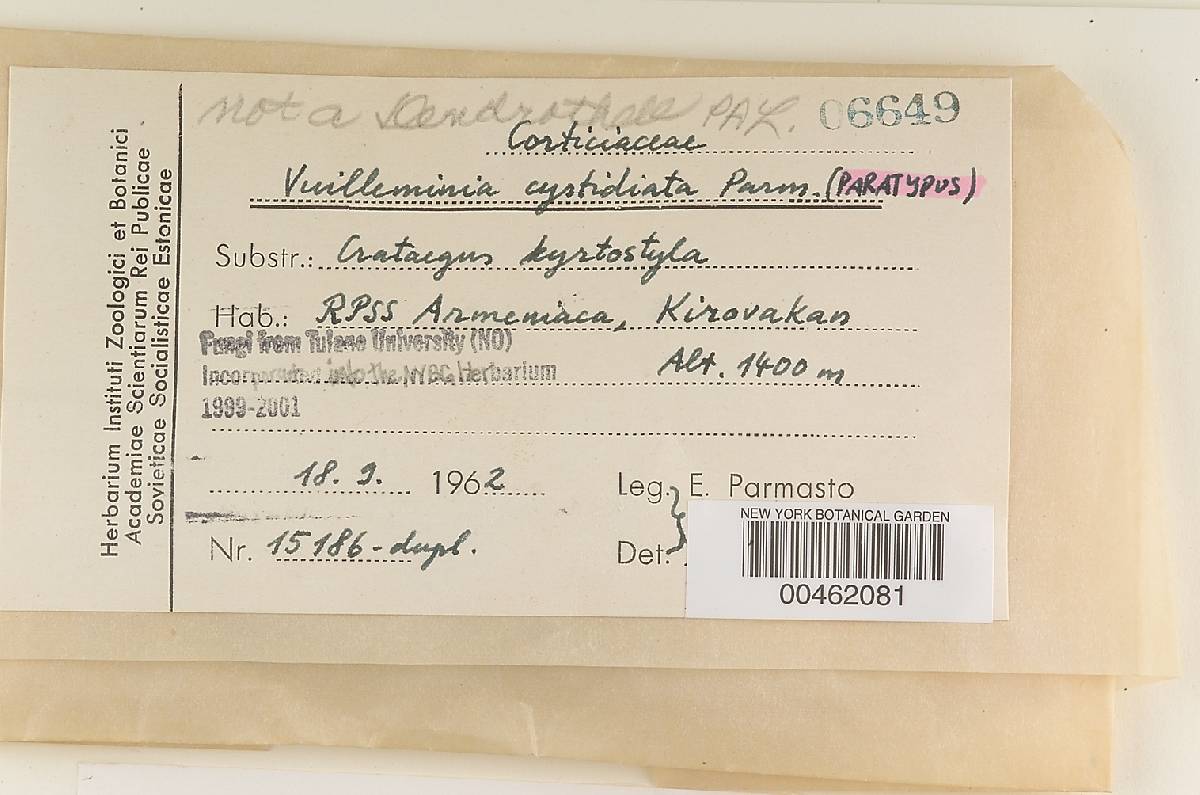 Herbarium Instituti Zoologici et Botanici
Academiae Scientiarum Rei Publicae
Sovieticae Socialisticae Estonicae
not a Dendrothele PAL.
06649
Corticiaceae
Vuilleminia cystidiata Parm. (PARATYPUS)
Substr.: Crataegus kyrtostyla
Hab.: RPSS Armeniaca, Kirovakan
Fungi from Tulane University (NO)
Alt. 1400 m
Incorporated into the NYBG Herbarium
1999-2001
18. 9. 1962
Leg. E. Parmasto
Nr. 15186-dupl.
Det.
NEW YORK BOTANICAL GARDEN
00462081